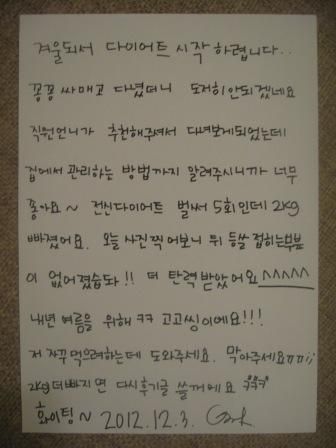 겨울되서 다이어트 시작하렵니다..
꽁꽁 싸매고 다녔더니 도저히안되겠네요
직원언니가 추천해주셔서 다녀보게되었는데
집에서 관리하는 방법까지 알려주시니까 너무
좋아요~ 전신다이어트 벌써 5회인데 2kg
빠졌어요. 오늘 사진찍어보니 뒤 등쌀 접히는부분
이 없어졌습돠!! 더 탄력받았어요^^^^^
내년 여름을 위해 ㅋㅋ 고고씽이에요!!!
저 자꾸 먹으려하는데 도와주세요. 막아주세요ㅠㅠ;;
2kg더빠지면 다시 후기글 쓸께에요 ㅋㅋㅋ
화이팅~ 2012.12.3.